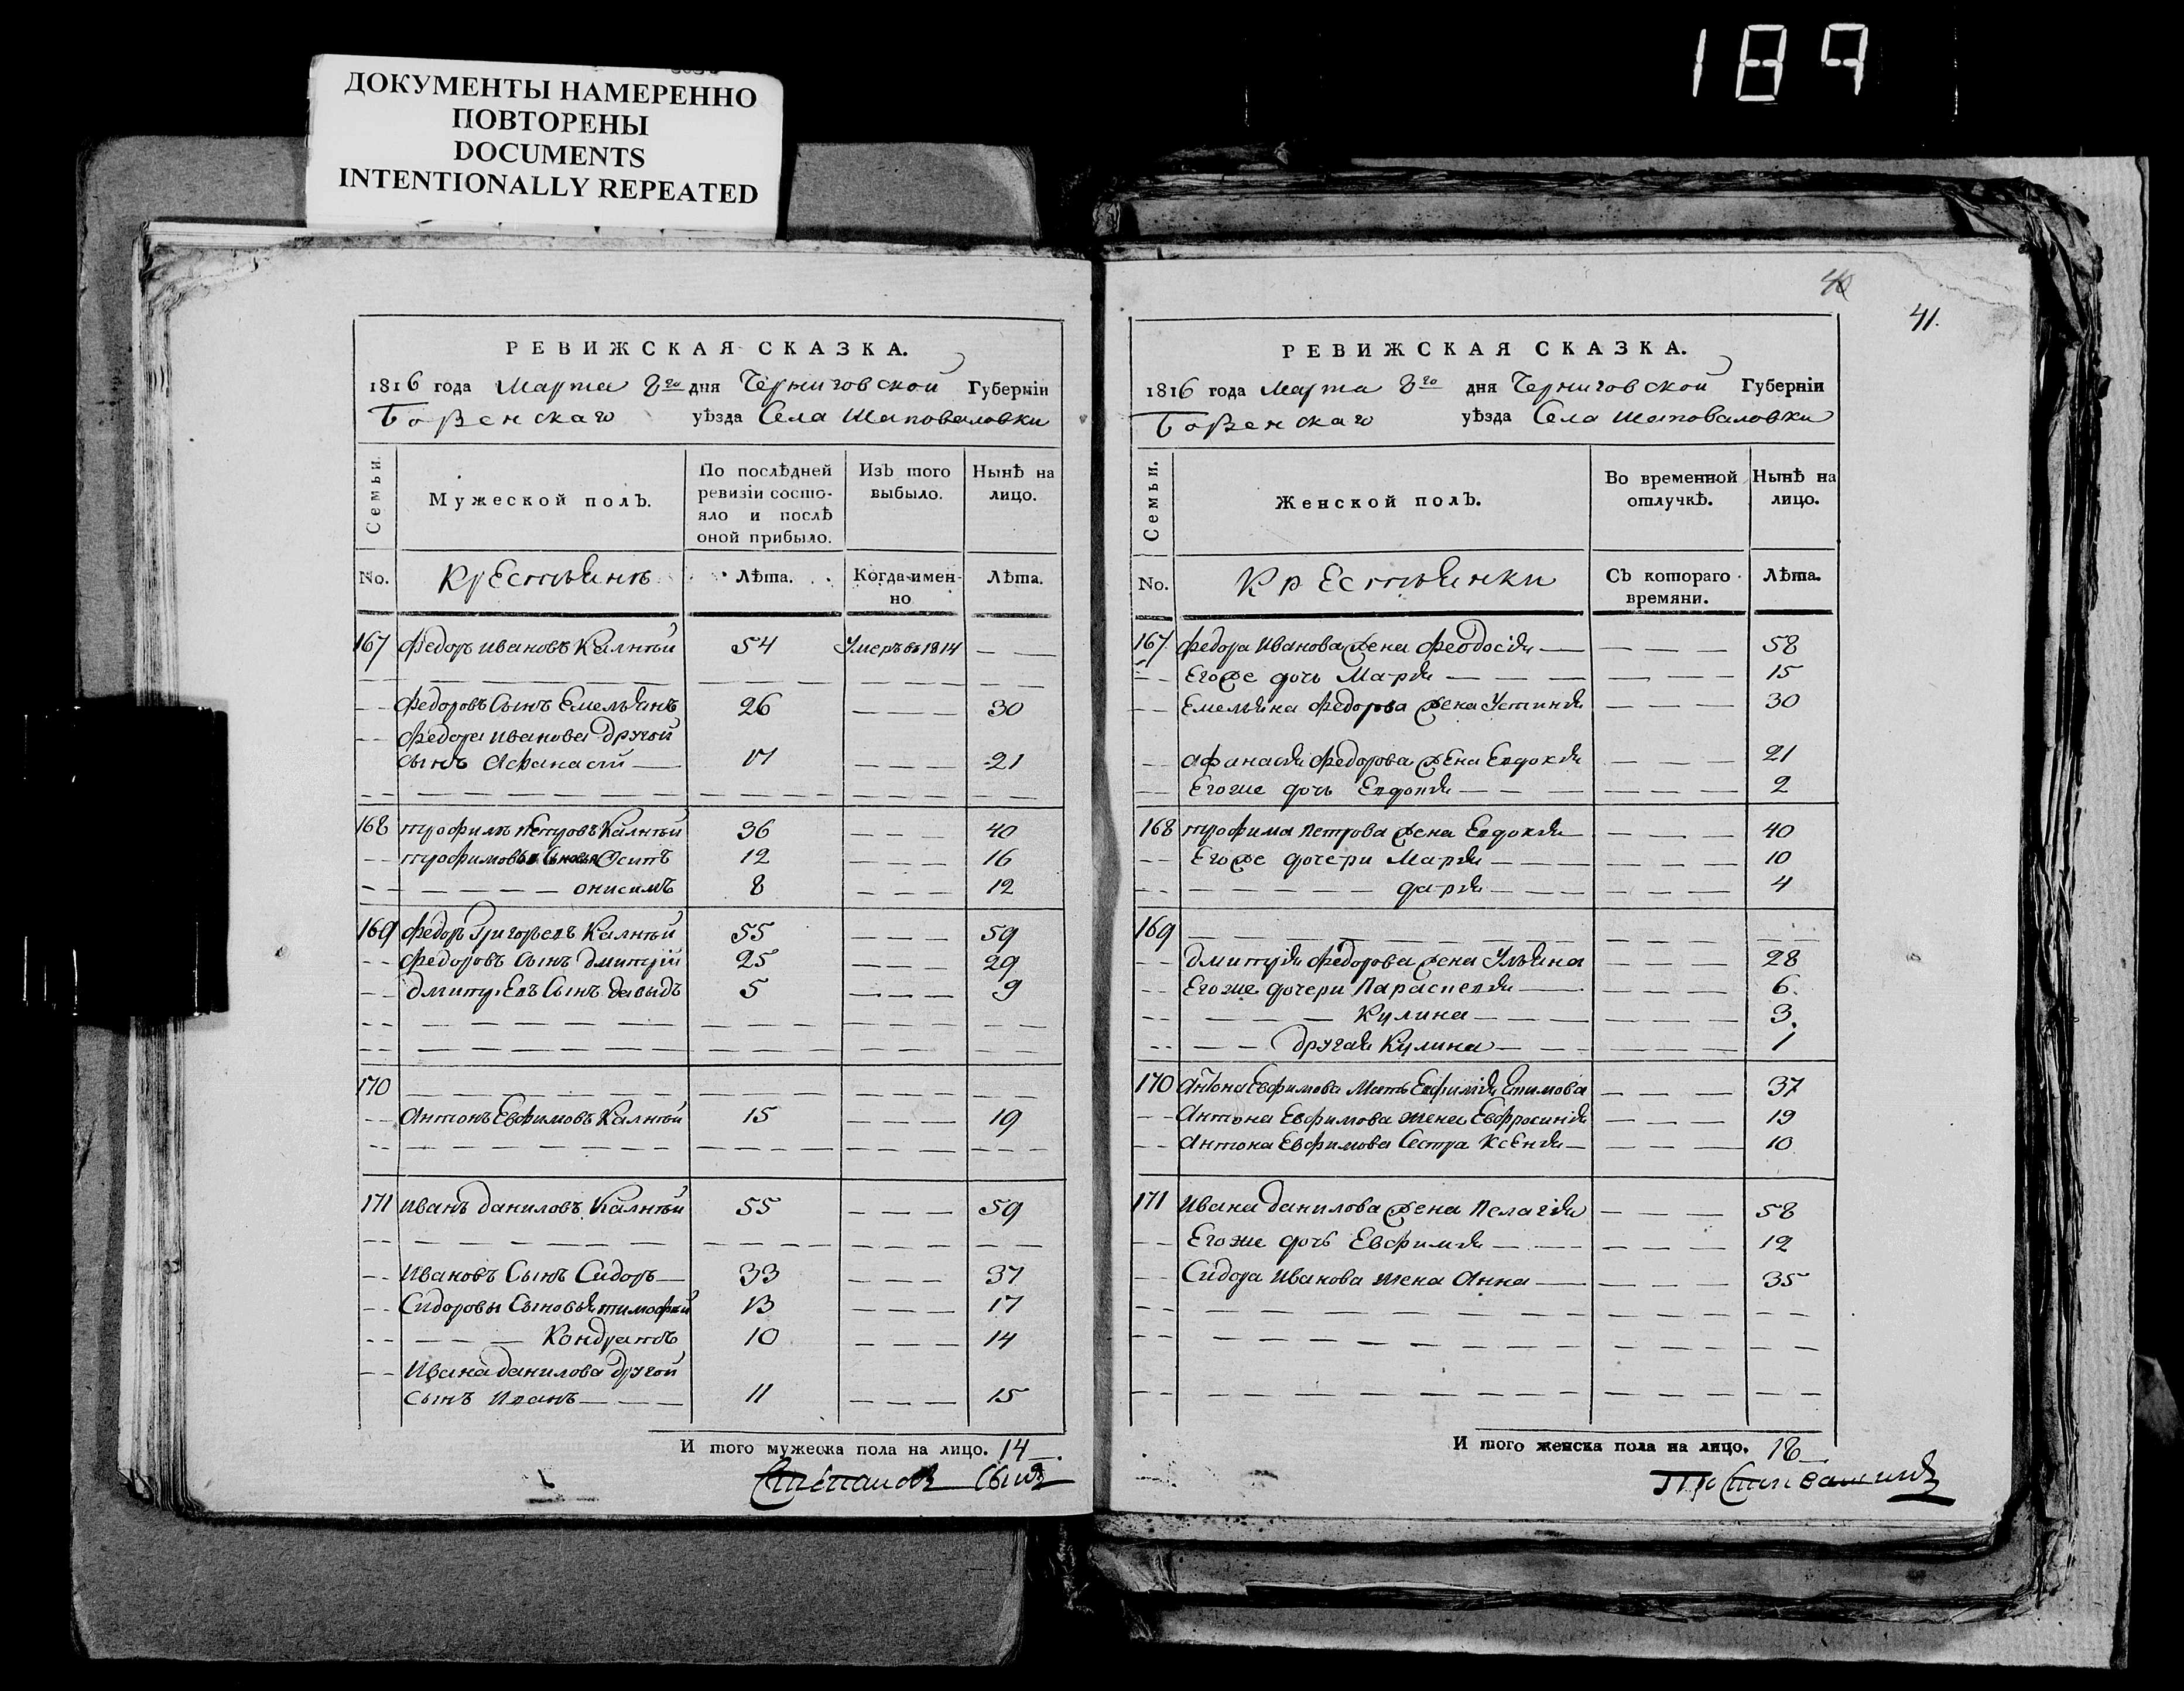 189
ДОКУМЕНТЫ НАМЕРЕННО
ПОВТОРЕНЫ
DOCUMENTS
INTENTIONALLY REPEATED
РЕВИЖСКАЯ СКАЗКА.
1816 года Марта 8го дня Черниговской Губерніи
Борзенскаго уѣзда Села Шаповаловки
Семьи. Мужеской полъ. По послѣдней ревизіи состояло и послѣ оной прибыло. Изъ того выбыло. Нынѣ на лицо.
No. Крестьянъ Лѣта. Когда имен-но Лѣта.
167 Федоръ Ивановъ Калный 54 Умеръ въ 1814 — —
Федоровъ Сынъ Емельянъ 26 — — — 30
Федора Иванова другой
сынъ Афанасій — 17 — — — 21
168 Трофимъ Петровъ Калный 36 — — — 40
Трофимовы Сыновья Осипъ 12 — — — 16
— — — — онисимъ 8 — — — 12
169 Федоръ Григорьевъ Калный 55 — — — 59
Федоровъ Сынъ Дмитрій 25 — — — 29
Дмитріевъ Сынъ давыдъ 5 — — — 9
170 — — — — — —
Антонъ Евфимовъ Калный 15 — — — 19
171 Иванъ Даниловъ Калный 55 — — — 59
Ивановъ Сынъ Сидоръ — 33 — — — 37
Сидоровы Сыновья тимофей 13 — — — 17
— — — Кондратъ 10 — — — 14
Ивана Данилова другой
сынъ Иванъ — — — 11 — — — 15
И того мужеска пола на лицо. 14
40
41.
РЕВИЖСКАЯ СКАЗКА.
1816 года Марта 8го дня Черниговской Губерніи
Борзенскаго уѣзда Села Шаповаловки
Семьи. Женской полъ. Во временной отлучкѣ. Нынѣ на лицо.
No. Крестьянки Съ котораго времяни. Лѣта.
167 Федора Иванова жена Феодосія — — — — 58
Егоже дочь Марія — — — — 15
Емельяна Федорова жена Устинія — — — 30
Афанасія Федорова жена Евдокія — — — 21
Егоже дочь Евдокія — — — 2
168 Трофима Петрова жена Евдокія — — — 40
Егоже дочери Марія — — — 10
— — — — дарія — — — 4
169 — — — — — —
Дмитрія Федорова жена Ульяна — — — 28
Егоже дочери Параскевія — — — 6
— — — Кулина — — — 3
— — другая Кулина — — — 1
170 Антона Евфимова Мать Евфимія Ефимова — — — 37
Антона Евфимова жена Евфросинія — — — 19
Антона Евфимова Сестра Ксенія — — — 10
171 Ивана Данилова жена Пелагія — — — 58
Егоже дочь Евфимія — — — 12
Сидора Иванова жена Анна — — — 35
И того женска пола на лицо. 18